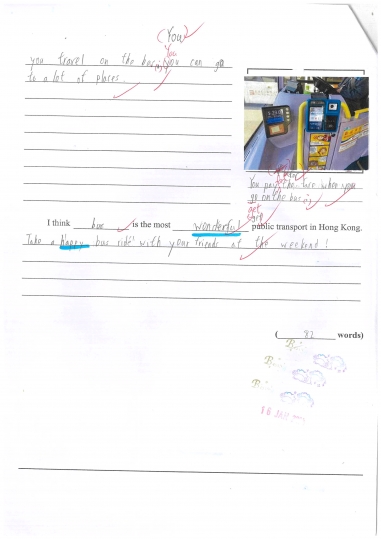 (You)
You
you travel on the bus, you can go
to a lot of places.
You pay the fare when you
go on the bus.
get
I think bus is the most wonderful public transport in Hong Kong.
Take a happy bus ride with your friends at the weekend!
( 82 words)